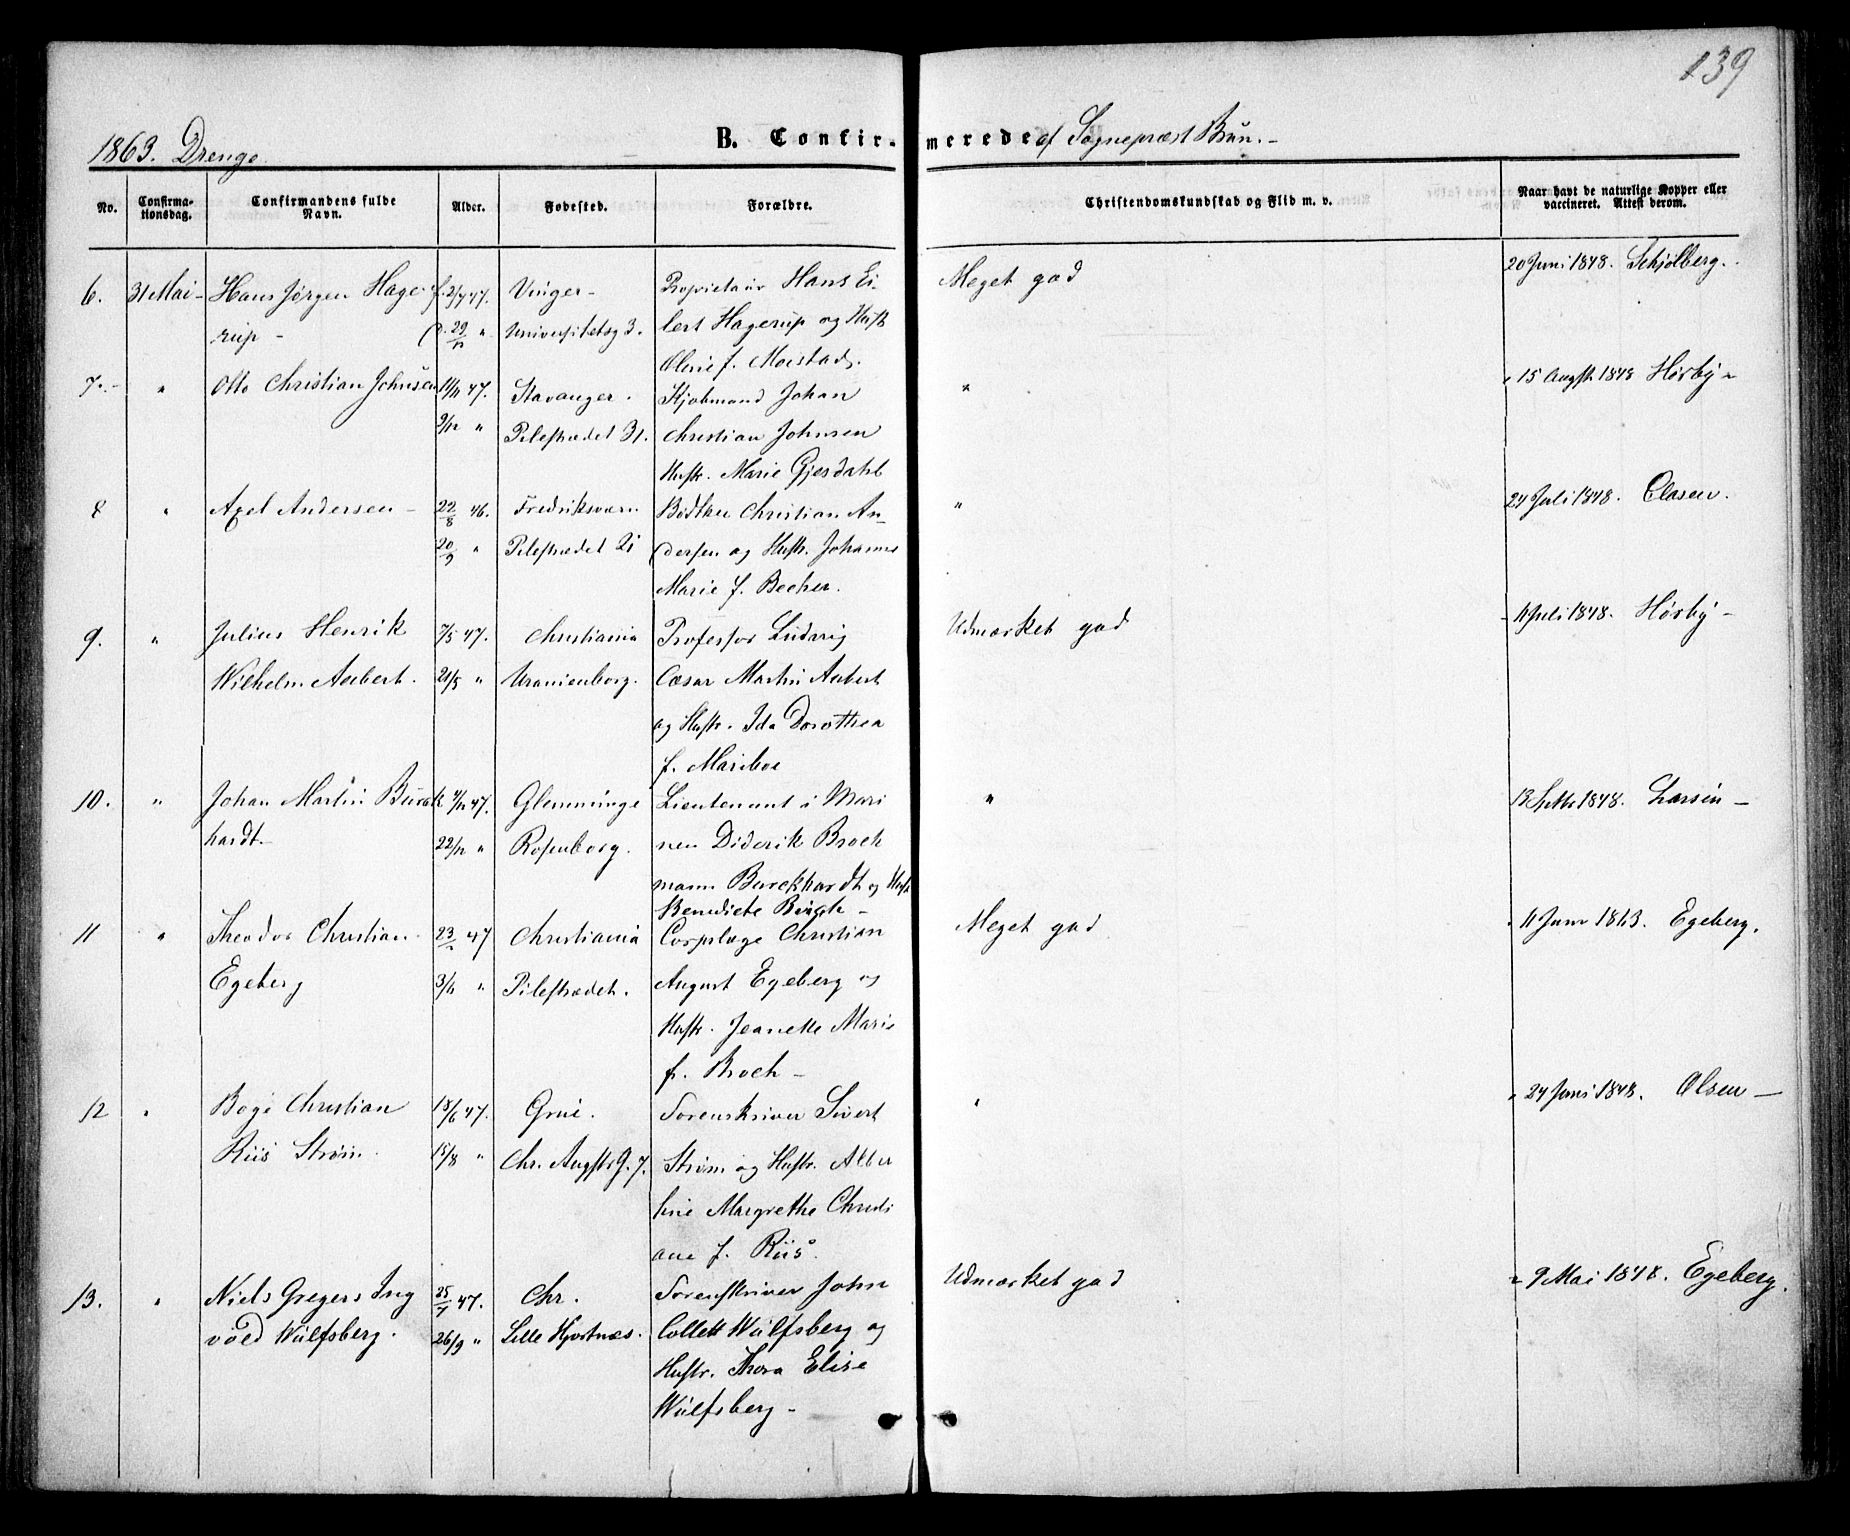 139
1863. Drenge
B. Confirmerede af Sognepræst Brun.
No.
Confirmationsdag.
Confirmandens fulde Navn.
Alder.
Fødested.
Forældre.
Christendomskundskab og Flid m. v.
Naar havt de naturlige Kopper eller vaccineret. Attest derom.
6. 31 Mai Hans Jørgen Hage f. 2/7 47. Vinger Proprietair Hans Ei Meget god 20 Juni 1848. Schjølberg.
rup 29/ " Universitetsg 3. lert Hagerup og Hustr
Oline f. Moestad.
7. " Otto Christian Johnsen 11/11 47. Stavanger. Kjøbmand Johan " 15 Augst 1848 Hørby
9/12 " Pilestrædet 31. Christian Johnsen
Hustr. Marie Gjesdahl
8 " Axel Andersen 22/8 46. Fredriksværn Bødtker Christian An " 24 Juli 1848. Clasen.
20/9 " Pilestrædet 21 dersen og Hustr. Johanne
Marie f. Becher.
9. " Julius Henrik 7/5 47. Christiania Professor Ludvig Udmærket god 11 Juli 1848. Hørby
Wilhelm Aubert. 21/5 " Uranienborg. Cæsar Martin Aubert
og Hustr. Ida Dorothea
f. Mariboe
10. " Johan Martin Burck 4/11 47. Glemminge Lieutenant i Mari " 13 Septbr 1848. Larsen
hardt. 22/12 " Rosenborg. nen Diderik Broch
mann Burckhardt og Hustr
Benedicte Birch
11 " Theodor Christian 23/ 47 Christiania Corpslæge Christian Meget god 11 Juni 1863. Egeberg.
Egeberg 3/11 " Pilestrædet. August Egeberg og
Hustr. Jeanette Marie
f. Broch
12 " Boye Christian 18/6 47. Grue. Sorenskriver Sivert " 24 Juni 1848. Olsen
Riis Strøm 15/8 " Chr. Augsts G. 7. Strøm og Hustr. Alber
tine Margrethe Christi
ane f. Riis.
13. " Niels Gregers Ing 25/7 47. Chr. Sorenskriver John Udmærket god 9 Mai 1848. Egeberg.
vold Wulfsberg. 26/9 " Lille Hjortnæs. Collett Wulfsberg og
Hustr. Thora Elise
Wulfsberg